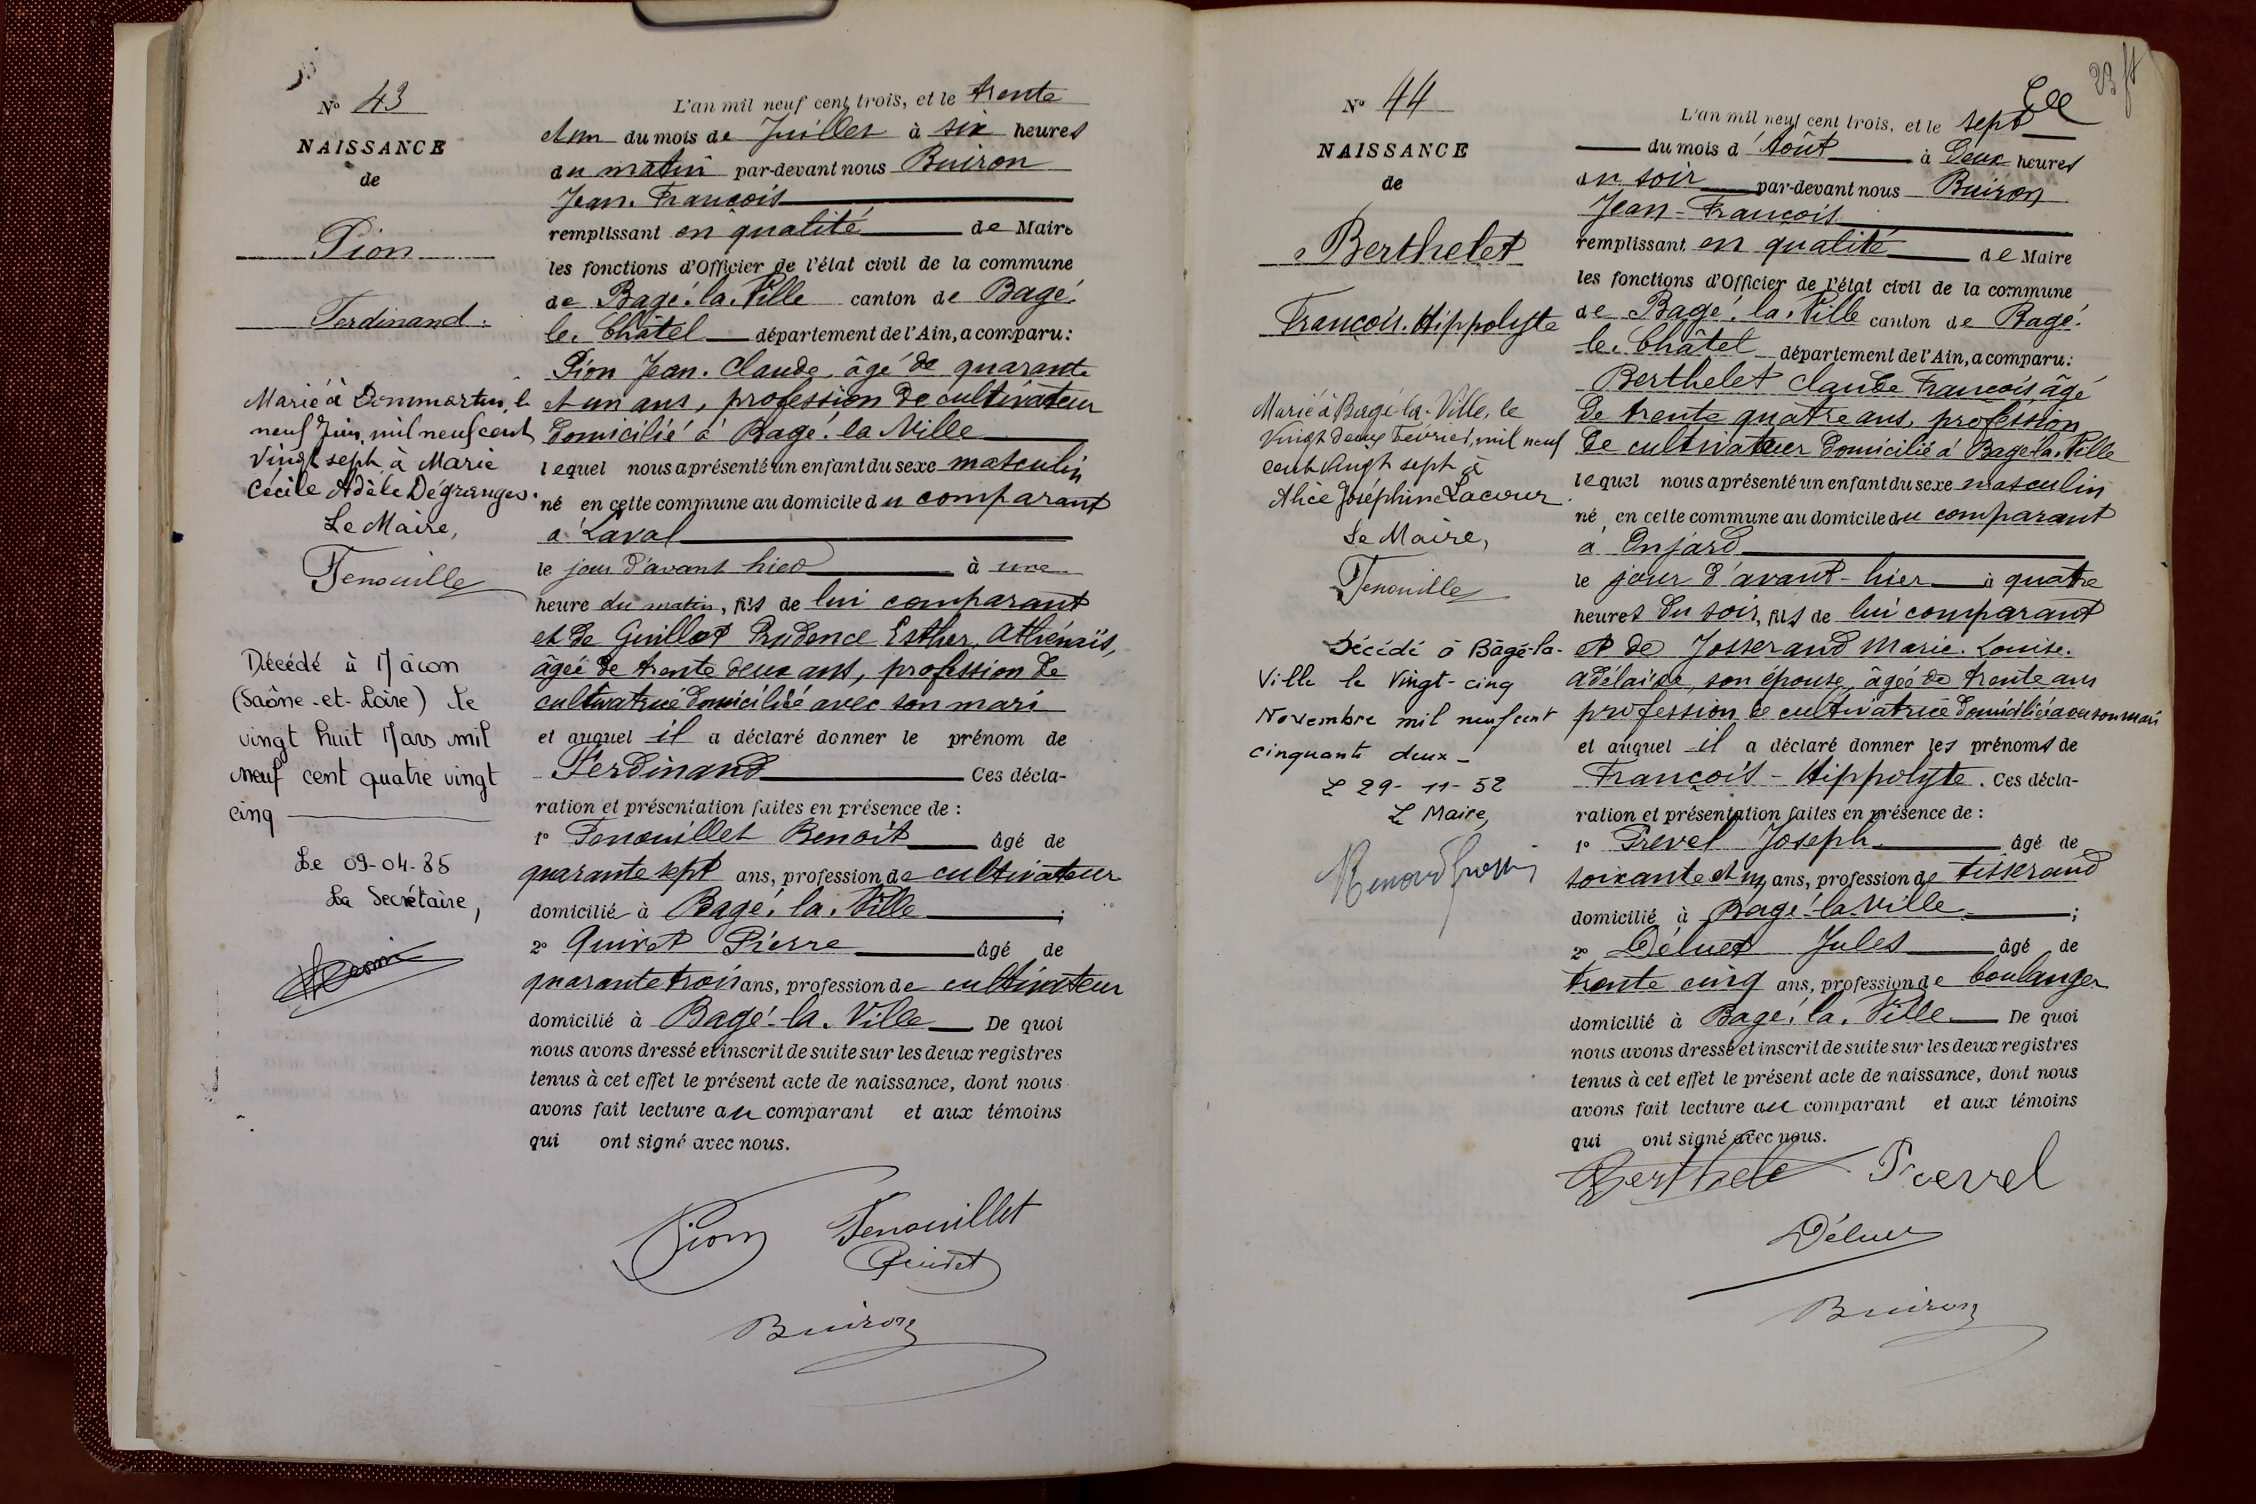 N° 43
NAISSANCE
de
Pion
Ferdinand.
Marié à Dommartin, le
neuf Juin mil neuf cent
vingt sept à Marie
Cécile Adèle Dégranges.
Le Maire,
Fenouille
Décédé à Mâcon
(Saône-et-Loire) le
vingt huit Mars mil
neuf cent quatre vingt
cinq
Le 09-04-85
La Secrétaire,
L'an mil neuf cent trois, et le trente
et un du mois de Juillet à six heures
du matin par-devant nous Buiron
Jean. François
remplissant en qualité de Maire
les fonctions d'Officier de l'état civil de la commune
de Bagé. la. Ville canton de Bagé.
le. Châtel département de l'Ain, a comparu:
Pion Jean. Claude âgé de quarante
et un ans, profession de cultivateur
domicilié à Bagé. la Ville
lequel nous a présenté un enfant du sexe masculin
né en cette commune au domicile du comparant
à Laval
le jour d'avant hier à une
heure du matin, fils de lui comparant
et de Guillot Prudence Esther, Athénaïs,
âgée de trente deux ans, profession de
cultivatrice domiciliée avec son mari
et auquel il a déclaré donner le prénom de
Ferdinand Ces décla-
ration et présentation faites en présence de :
1° Fenouillet Benoît âgé de
quarante sept ans, profession de cultivateur
domicilié à Bagé. la. Ville ;
2° Quivet Pierre âgé de
quarante trois ans, profession de cultivateur
domicilié à Bagé-la. Ville De quoi
nous avons dressé et inscrit de suite sur les deux registres
tenus à cet effet le présent acte de naissance, dont nous
avons fait lecture au comparant et aux témoins
qui ont signé avec nous.
Pion Fenouillet
Quivet
Buiron
N° 44
NAISSANCE
de
Berthelet
François. Hippolyte
Marié à Bagé-la-Ville, le
Vingt deux Février, mil neuf
cent vingt sept à
Alice Joséphine Lacour
Le Maire,
Fenouille
Décédé à Bâgé-la-
Ville le Vingt-cinq
Novembre mil neuf cent
cinquante deux -
Le 29-11-52
Le Maire,
L'an mil neuf cent trois, et le sept
du mois d'Août à deux heures
du soir par-devant nous Buiron
Jean-François
remplissant en qualité de Maire
les fonctions d'Officier de l'état civil de la commune
de Bagé. la. Ville canton de Bagé.
le. Châtel département de l'Ain, a comparu:
Berthelet Claude François âgé
de trente quatre ans, profession
de cultivateur domicilié à Bagé-la. Ville
lequel nous a présenté un enfant du sexe masculin
né en cette commune au domicile du comparant
à Onjard
le jour d'avant-hier à quatre
heures du soir, fils de lui comparant
et de Josserand Marie. Louise.
Adélaïde, son épouse, âgée de trente ans
profession de cultivatrice domiciliée avec son mari
et auquel il a déclaré donner les prénoms de
François-Hippolyte. Ces décla-
ration et présentation faites en présence de :
1° Prevel Joseph âgé de
soixante et un ans, profession de tisserand
domicilié à Bagé-la-Ville ;
2° Déluet Jules âgé de
trente cinq ans, profession de boulanger
domicilié à Bagé. la. Ville De quoi
nous avons dressé et inscrit de suite sur les deux registres
tenus à cet effet le présent acte de naissance, dont nous
avons fait lecture au comparant et aux témoins
qui ont signé avec nous.
Berthelet Prevel
Déluet
Buiron